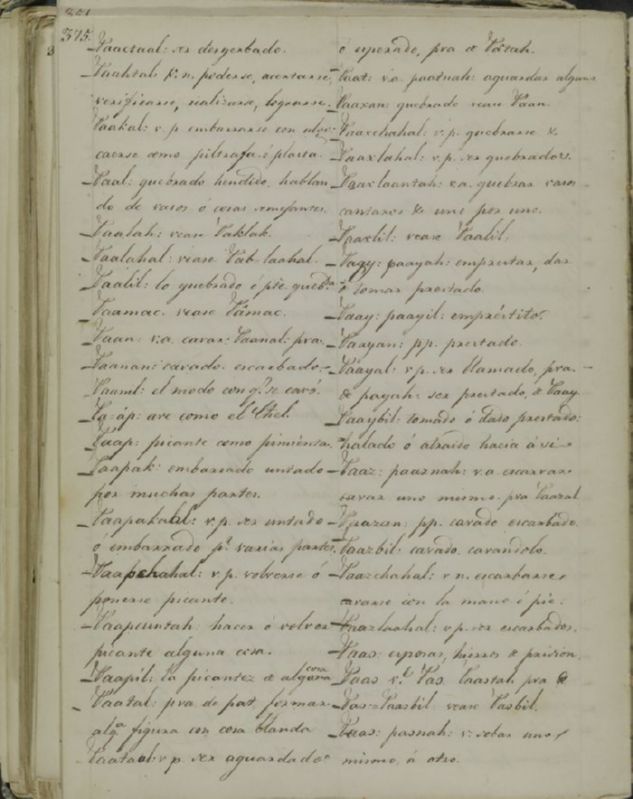 375.
Paactaal: ser desyerbado.
Paahtal: v. n. poderse, acertarse,
verificarse, realizarse, lograrse.
Paakal: v. p. embarrarse con algo:
caerse como piltrafa é plasta.
Paal: quebrado hendido, hablan
do de vasos ó cosas semejantes.
Paalah: vease Paklak.
Paalahal: vease Pab-laahal.
Paalil: lo quebrado é pte queb.da
Paamac. vease Pámac.
Paan: v. a. cavar: Paanal: pra.
Paanan: cavado. escarbado.
Paanil: el modo con q.e se cavó.
Pa-áp: ave como el Chel.
Paap: picante como pimienta.
Paapak: embarrado untado
por muchas partes.
Paapakal: v. p. ser untado
ó embarrado p.r varias partes.
Paapchahal: v. p. volverse ó
ponerse picante.
Paapcuntah: hacer ó volver
picante alguna cosa.
Paapil: la picantez de alguna cosa
Paatal: pra de pat, formar
alg.a figura con cosa blanda
Paatal: v. p. ser aguardado
ó esperado, pra de Páatah.
Paat: v. a. paatnah: aguardar alguno
Paaxan: quebrado vease Paan.
Paaxchahal: v. p. quebrarse &.
Paaxlahal: v. p. ser quebrados.
Paaxlaantah: v. a. quebrar vasos
cantaros & uno por uno.
Paaxlil: vease Paalil.
Paay: paayah: emprestar, dar
ó tomar prestado.
Paay: paayil: empréstito.
Paayan: pp. prestado.
Paayal: v. p. ser llamado, pra.
de payah: ser prestado, de Paay
Paaybil: tomado ó dado prestado:
halado ó atraido hacia á si
Paaz: paaznah: v. a. escarvar
cavar uno mismo. pra Paazal
Paazan: pp. cavado escarbado.
Paazbil: cavado, cavandolo.
Paazchahal: v. n. escarbarse,
cavarse con la mano é pie.
Paazlaahal: v. p. ser escarbados.
Paas: esposas, hierros de prision.
Paas v.l Pas. Paastah pra
Pas-Paasbil: vease Pasbil.
Paas: pasnah: v: sobar uno
mismo, á otro.